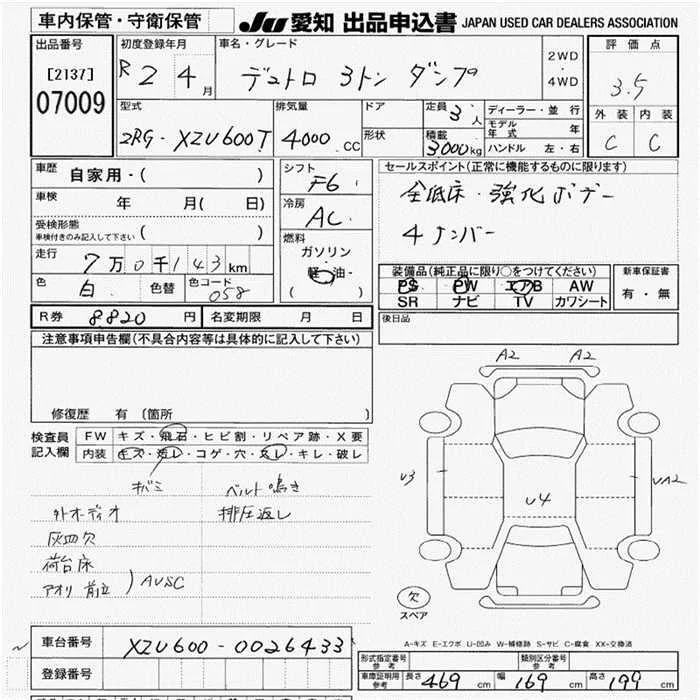 車内保管・守衛保管 JU 愛知 出品申込書 JAPAN USED CAR DEALERS ASSOCIATION
出品番号 初度登録年月 車名・グレード 評価点
[2137] R2 4月 デュトロ 3トン ダンプ 2WD・4WD 3.5
07009 外装 内装
型式 排気量 ドア 定員 3人 ディーラー・並行 C C
2RG-XZU600T 4000 CC 形状 積載 3000kg モデル年式 年
ハンドル 左・右
車歴 自家用・( ) シフト F6 セールスポイント(正常に機能するものに限ります)
車検 年 月( 日) 冷房 AC 全低床・強化ボデー
受検形態 4ナンバー
車検付きのみ記入して下さい ( )
走行 7万0千143km 燃料 ガソリン・軽油・( )
装備品(純正品に限り○をつけてください) 新車保証書
色 白 色替 色コード 058 PS PW エアB AW 有・無
SR ナビ TV カワシート
R券 8820円 名変期限 月 日 後日品
注意事項申告欄(不具合内容等は具体的に記入して下さい)
修復歴 有 (箇所 )
A2 A2
検査員記入欄 FW キズ・飛石・ヒビ割・リペア跡・X要
内装 キズ・汚レ・コゲ・穴・スレ・キレ・破レ
キバミ ベルト鳴き
外オーディオ 排圧返し
灰皿欠
荷台床
アオリ 前立 )AUSC
U3 U4 UA2
欠
スペア
車台番号 XZU600-0026433
登録番号
A-キズ E-エクボ U-凹み W-補修跡 S-サビ C-腐食 XX-交換済
形式指定番号 参考 類別区分番号 参考
車庫証明用 参考 長さ 469 cm 幅 169 cm 高さ 199 cm